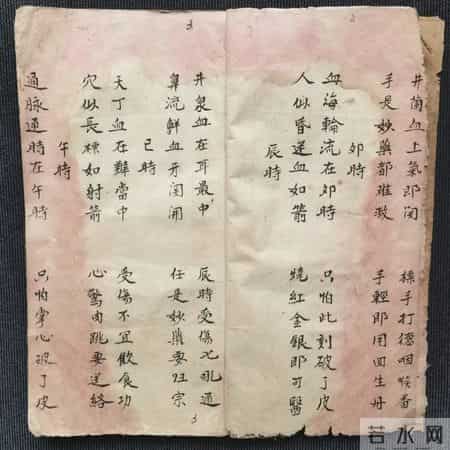 井蘭血上氣即閉 操手打德咽喉香
手是妙藥都难救 手輕即用回生丹
卯時
血海輪流在卯時 只怕此刻破了皮
人似昏迷血如箭 燒紅金銀即可醫
辰時
井泉血在耳最中 辰時受傷九孔通
鼻流鮮血牙関開 任是妙藥要归宗
巳時
天丁血在難當中 受傷不宜飲食功
穴似長標如射箭 心驚肉跳要送終
午時
通脉通時在午時 只怕掌心破了皮
若水网